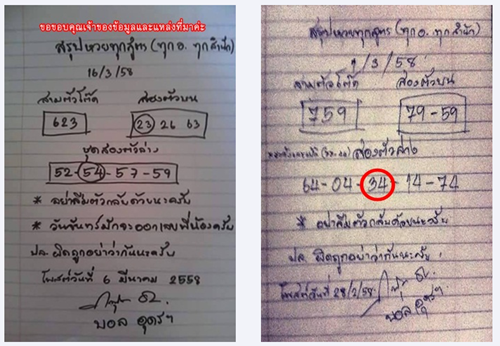 ขอขอบคุณเจ้าของข้อมูลและแหล่งที่มาค่ะ
สรุปหวยทุกสูตร (ทุก อ. ทุกสำนัก)
16/3/58
สามตัวโต๊ด สองตัวบน
623 23 26 63
ชุดสองตัวล่าง
52-54-57-59
* อย่าลืมตัวกลับด้วยนะครับ
* วันจันทร์มักจะออกเลขพี่น้องครับ
ปล. ผิดถูกอย่าว่ากันนะครับ
โพสต์วันที่ 6 มีนาคม 2558
บอล อุดรฯ
สรุปหวยทุกสูตร (ทุก อ. ทุกสำนัก)
1/3/58
สามตัวโต๊ด สองตัวบน
759 79-59
สองตัวล่าง
64-04-34-14-74
* อย่าลืมตัวกลับด้วยนะครับ
ปล. ผิดถูกอย่าว่ากันนะครับ
โพสต์วันที่ 28/2/58
บอล อุดรฯ